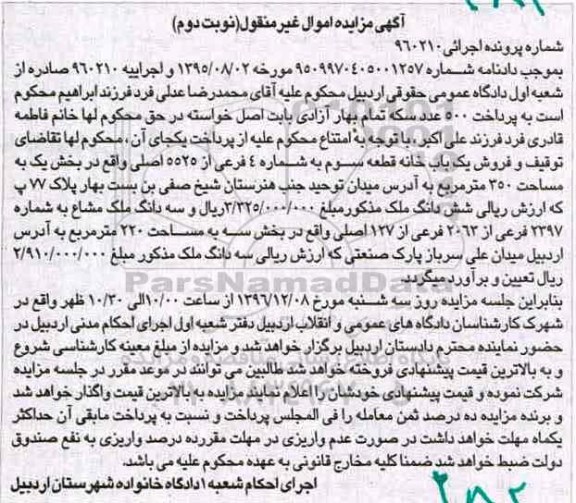 آگهی مزایده اموال غیر منقول(نوبت دوم)
شماره پرونده اجرائی ۹۶۰۲۱۰
بموجب دادنامه شماره ۹۵۰۹۹۷۰۴۰۵۰۰۱۲۵۷ مورخه ۱۳۹۵/۰۸/۰۲ و اجراییه ۹۶۰۲۱۰ صادره از
شعبه اول دادگاه عمومی حقوقی اردبیل محکوم علیه آقای محمدرضا عدلی فرد فرزند ابراهیم محکوم
است به پرداخت ۵۰۰ عدد سکه تمام بهار آزادی بابت اصل خواسته در حق محکوم لها خانم فاطمه
قادری فرد فرزند علی اکبر، با توجه به امتناع محکوم علیه از پرداخت یکجای آن، محکوم لها تقاضای
توقیف و فروش یکباب خانه قطعه سوم به شماره ٤ فرعی از ۵۵۲۵ اصلی واقع در بخش یک به
مساحت ۳۵۰ مترمربع به آدرس میدان توحید جنب هنرستان شیخ صفی بن بست بهار پلاک ۷۷ پ
که ارزش ریالی شش دانگ ملک مذکور مبلغ ۳/۳۲۵/۰۰۰/۰۰۰ریال و سه دانگ ملک مشاع به شماره
۲۳۹۷ فرعی از ۲۰۶۳ فرعی از ۱۲۷ اصلی واقع در بخش سه به مساحت ۲۲۰ مترمربع به آدرس
اردبیل میدان علی سرباز پارک صنعتی که ارزش ریالی سه دانگ ملک مذکور مبلغ ۲/۹۱۰/۰۰۰/۰۰۰
ریال تعیین و برآورد میگردد.
بنابراین جلسه مزایده روز سه شنبه مورخ ۱۳۹۶/۱۲/۰۸ از ساعت ۱۰/۰۰الی ۱۰/۳۰ ظهر واقع در
شهرک کارشناسان دادگاه های عمومی و انقلاب اردبیل دفتر شعبه اول اجرای احکام مدنی اردبیل در
حضور نماینده محترم دادستان اردبیل برگزار خواهد شد و مزایده از مبلغ معینه کارشناسی شروع
و به بالاترین قیمت پیشنهادی فروخته خواهد شد طالبین می توانند در موعد مقرر در جلسه مزایده
شرکت نموده و قیمت پیشنهادی خودشان را اعلام نماید مزایده به بالاترین قیمت واگذار خواهد شد
و برنده مزایده ده درصد ثمن معامله را فی المجلس پرداخت و نسبت به پرداخت مابقی آن حداکثر
یکماه مهلت خواهد داشت در صورت عدم واریزی در مهلت مقرره ده درصد واریزی به نفع صندوق
دولت ضبط خواهد شد ضمنا کلیه مخارج قانونی به عهده محکوم علیه می باشد.
اجرای احکام شعبه ۱ دادگاه خانواده شهرستان اردبیل
ParsNamadData